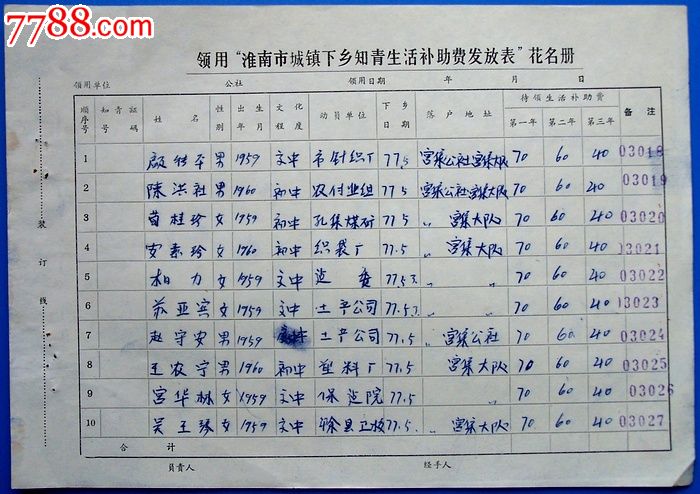 7788.com
中国收藏热线
领用“淮南市城镇下乡知青生活补助费发放表”花名册
领用单位 公社 领用日期 年 月 日
顺序号 知青证号码 姓名 性别 出生年月 文化程度 动员单位 下乡日期 落户地址 待领生活补助费 备注
第一年 第二年 第三年
1 男 1959 市针织厂 77.5 宫集公社宫集大队 70 60 40 03018
2 陈洪社 男 1960 初中 农付业组 77.5 宫集公社宫集大队 70 60 40 03019
3 苗桂珍 女 1959 初中 孔集煤矿 77.5 〃 宫集大队 70 60 40 03020
4 安素珍 女 1960 初中 织袋厂 77.5 〃 宫集大队 70 60 40 03021
5 柏力 女 1959 77.5 70 60 40 03022
6 苏亚宾 女 1959 土产公司 77.5 70 60 40 03023
7 赵守安 男 1959 土产公司 77.5 宫集公社 70 60 40 03024
8 王农宁 男 1960 初中 塑料厂 77.5 宫集大队 70 60 40 03025
9 宫华林 女 1959 保育院 77.5 70 60 40 03026
10 吴玉琴 女 1959 77.5 〃 宫集大队 70 60 40 03027
合计
负责人 经手人
装订线